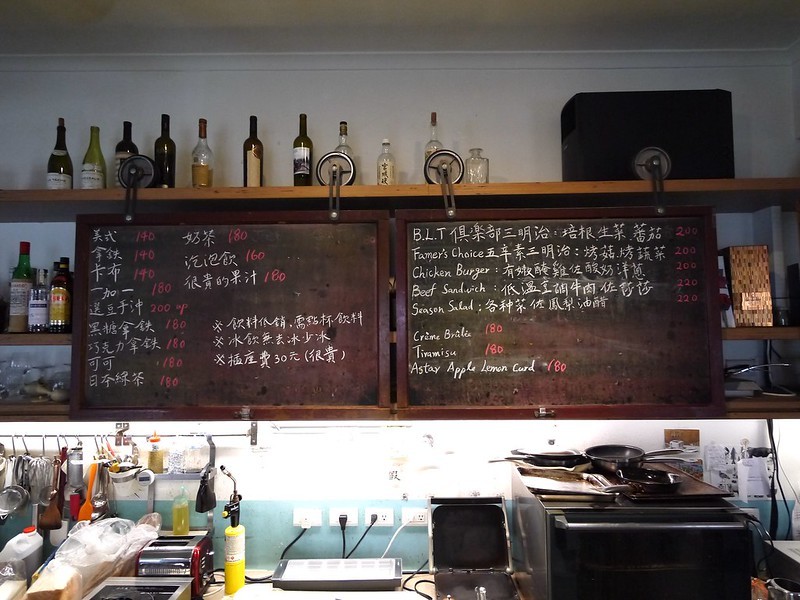 美式 140
拿鐵 140
卡布 140
一加一 180
選豆手沖 200 up
黑糖拿鐵 180
巧克力拿鐵 180
可可 180
日本綠茶 180
奶茶 180
泡泡飲 160
很貴的果汁 180
※飲料低銷,需點杯飲料
※冰飲無去冰少冰
※插座費30元(很貴)
B.L.T 俱樂部三明治:培根生菜.蕃茄 200
Famer's Choice 五辛素三明治:烤菇.烤蔬菜 200
Chicken Burger:有嫩醃雞佐酸奶洋蔥 200
Beef Sandwich:低溫烹調牛肉佐莎莎 220
Season Salad:各种菜佐鳳梨油醋 220
Crème Brûlée 180
Tiramisu 180
Astar Apple Lemon Curd 180